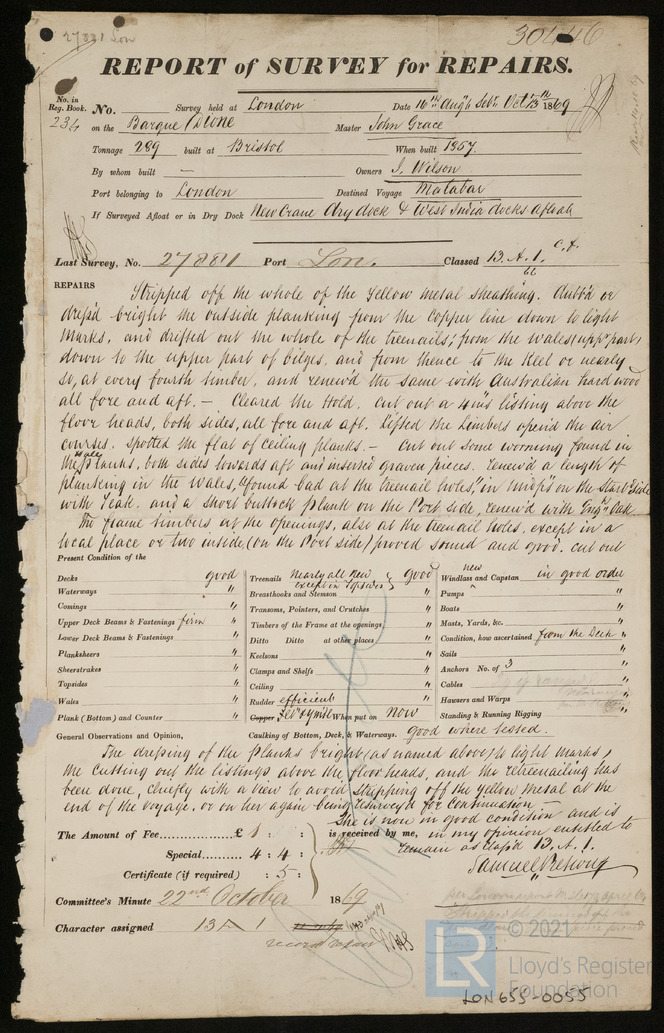 27881 Lon
30446
REPORT of SURVEY for REPAIRS.
No. in Reg. Book. No. Survey held at London Date 16th Augt Sebr. Oct 13th 1869
234 on the Barque Dione Master John Grace
Tonnage 289 built at Bristol When built 1857
By whom built — Owners J. Wilson
Port belonging to London Destined Voyage Malabar
If Surveyed Afloat or in Dry Dock New Crane Dry dock & West India docks Afloat
Last Survey, No. 27881 Port Lon. Classed 13. A. 1. c.f.
66
REPAIRS Stripped off the whole of the Yellow Metal sheathing. Dubb'd or
dress'd bright the outside planking from the Copper line down to light
Marks, and drifted out the whole of the treenails, from the Wales (upp. part)
down to the upper part of bilges, and from thence to the Keel or nearly
so, at every fourth timber, and renew'd the same with Australian hard wood
all fore and aft. — Cleared the Hold. cut out a 4 ins listing above the
floor heads, both sides, all fore and aft. Lifted the Limbers open'd the air
courses. Spotted the flat of Ceiling planks. — Cut out some worming found in
the Wale planks, both sides towards aft and inserted graven pieces. Renew'd a length of
planking in the Wales, "found bad at the treenail holes," in Midps on the Starb Side
with Teak. and a short buttock plank on the Port side, renew'd with Engh Oak.
The frame timbers at the openings, also at the treenail holes, except in a
local place or two inside, (on the Port side) proved sound and good. cut out
Present Condition of the
Decks good
Waterways "
Comings "
Upper Deck Beams & Fastenings firm
Lower Deck Beams & Fastenings "
Planksheers "
Sheerstrakes "
Topsides "
Wales "
Plank (Bottom) and Counter "
Treenails Nearly all New except in Topsides good
Breasthooks and Stemson "
Transoms, Pointers, and Crutches "
Timbers of the Frame at the openings "
Ditto Ditto at other places "
Keelsons "
Clamps and Shelfs "
Ceiling "
Rudder efficient "
Copper Felt & Y Metl When put on Now
Caulking of Bottom, Deck, & Waterways. good where tested.
Windlass and Capstan new in good order
Pumps "
Boats "
Masts, Yards, &c. "
Condition, how ascertained from the Deck
Sails "
Anchors No. of 3 "
Cables "
Hawsers and Warps "
Standing & Running Rigging "
General Observations and Opinion,
The dressing of the planks bright (as named above) to light marks,
the cutting out the listings above the floor heads, and the retreenailing has
been done, chiefly with a view to avoid stripping off the yellow metal at the
end of the voyage, or on her again being resurvey'd for Continuation —
She is now in good condition and is
in my opinion entitled to
remain as class'd 13. A. 1.
Samuel Pretious
The Amount of Fee........ £ 1 : :
is received by me,
Special......... 4 : 4 :
Certificate (if required) : 5 :
Committee's Minute 22nd October 1869
Character assigned 13 A 1
© 2021
LR
Lloyd's Register
Foundation
LON655-0055